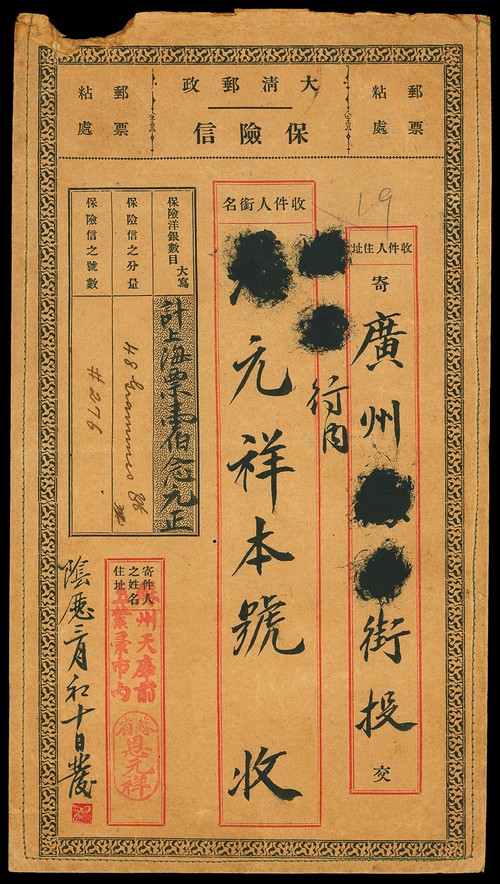 大清郵政
保險信
郵票
粘處
郵票
粘處
19
收件人住址
寄
廣州
街投
交
行內
收件人銜名
元祥本號 收
保險洋銀數目 大寫
計上海票壹伯念元正
保險信之分量
48 Grammes
保險信之號數
#276
寄件人
之姓名
住址
州天庫前
市內
蘇省
恩元祥
陰歷二月初十日